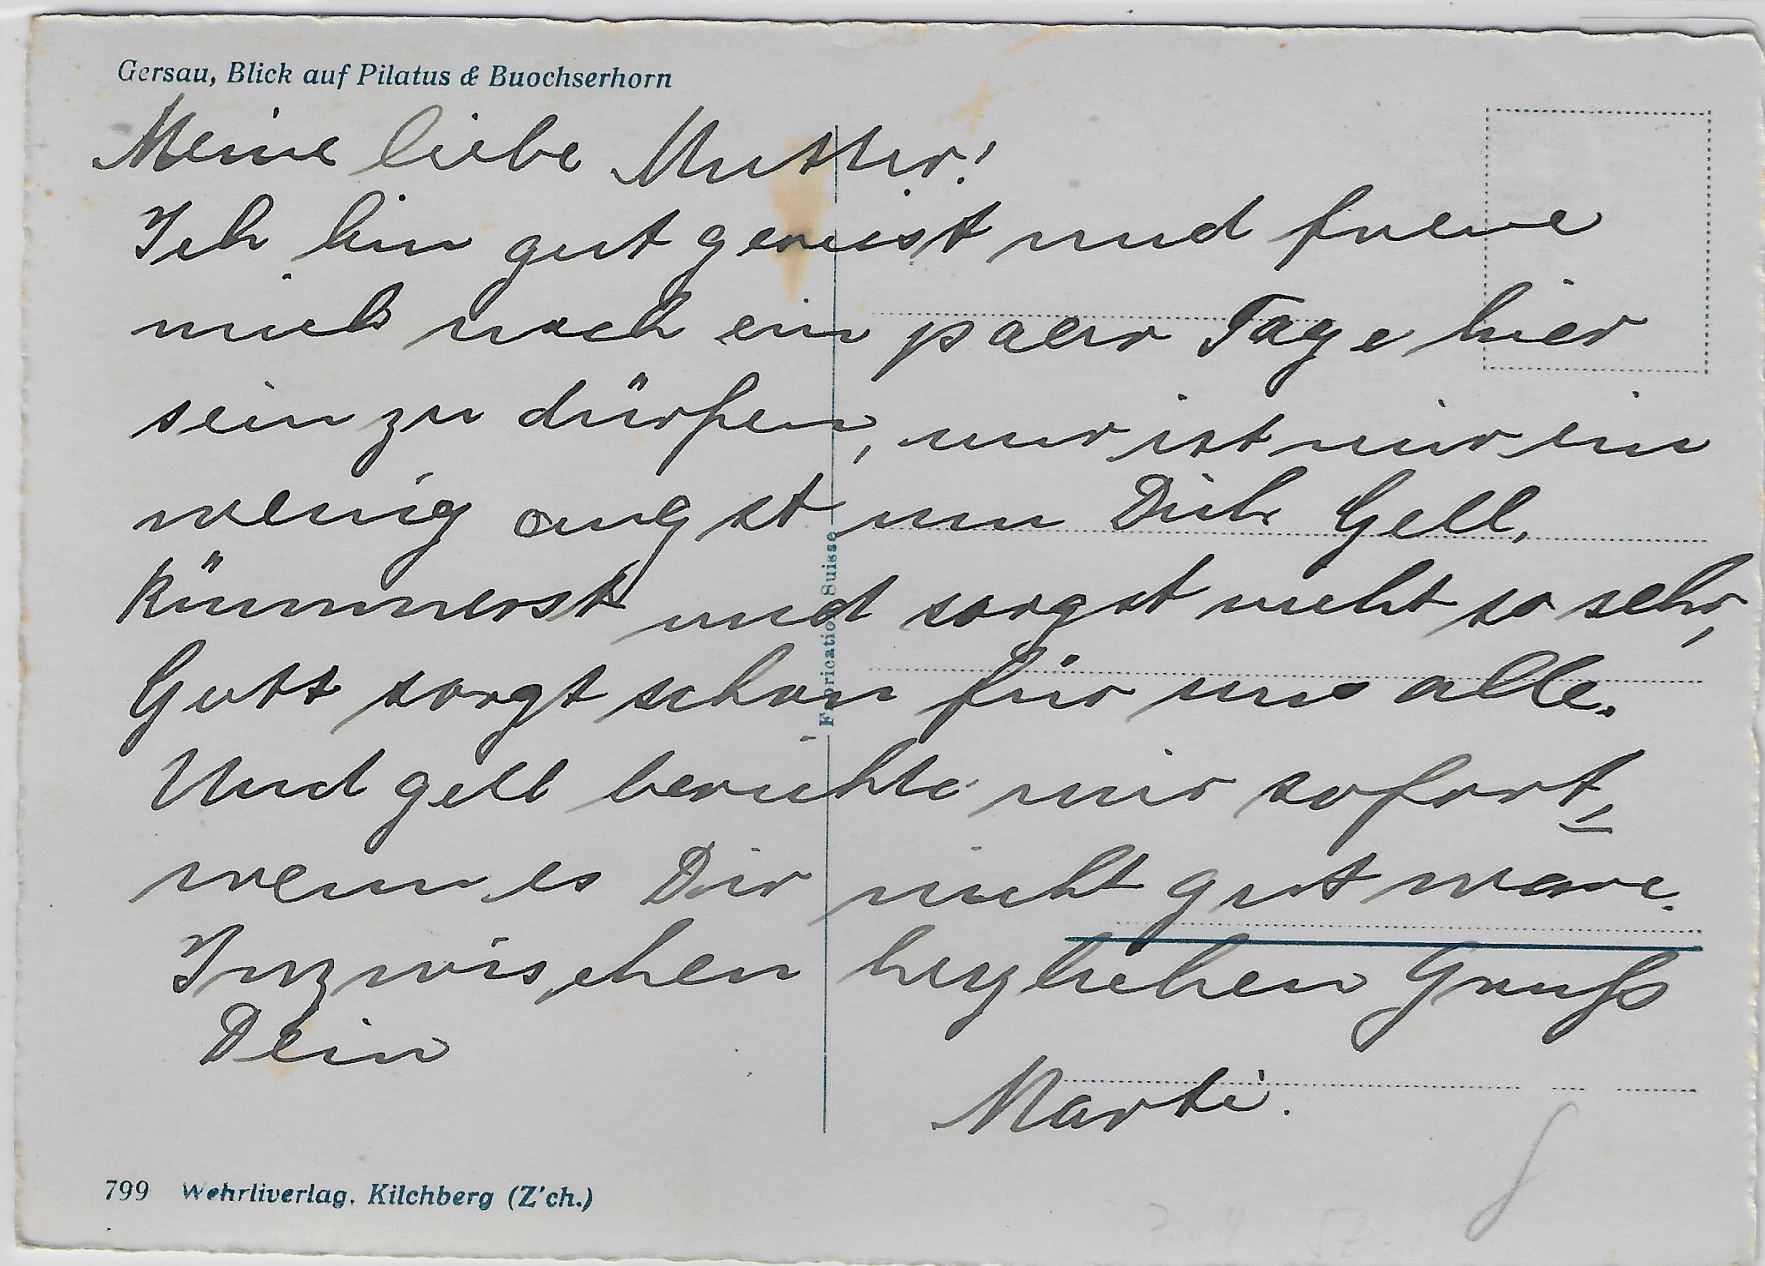 Gersau, Blick auf Pilatus & Buochserhorn
Meine liebe Mutter!
Ich bin gut gereist und freue
mich noch ein paar Tage hier
sein zu dürfen, nur ist mir ein
wenig angst um Dich Gell,
Kümmerst und sorgst nicht so sehr,
Gott sorgt schon für uns alle.
Und gell berichte mir sofort,
wenn es Dir nicht gut wäre.
Inzwischen herzlichen Gruß
Dein
Marti.
Fabrication Suisse
799 Wehrliverlag, Kilchberg (Z'ch.)